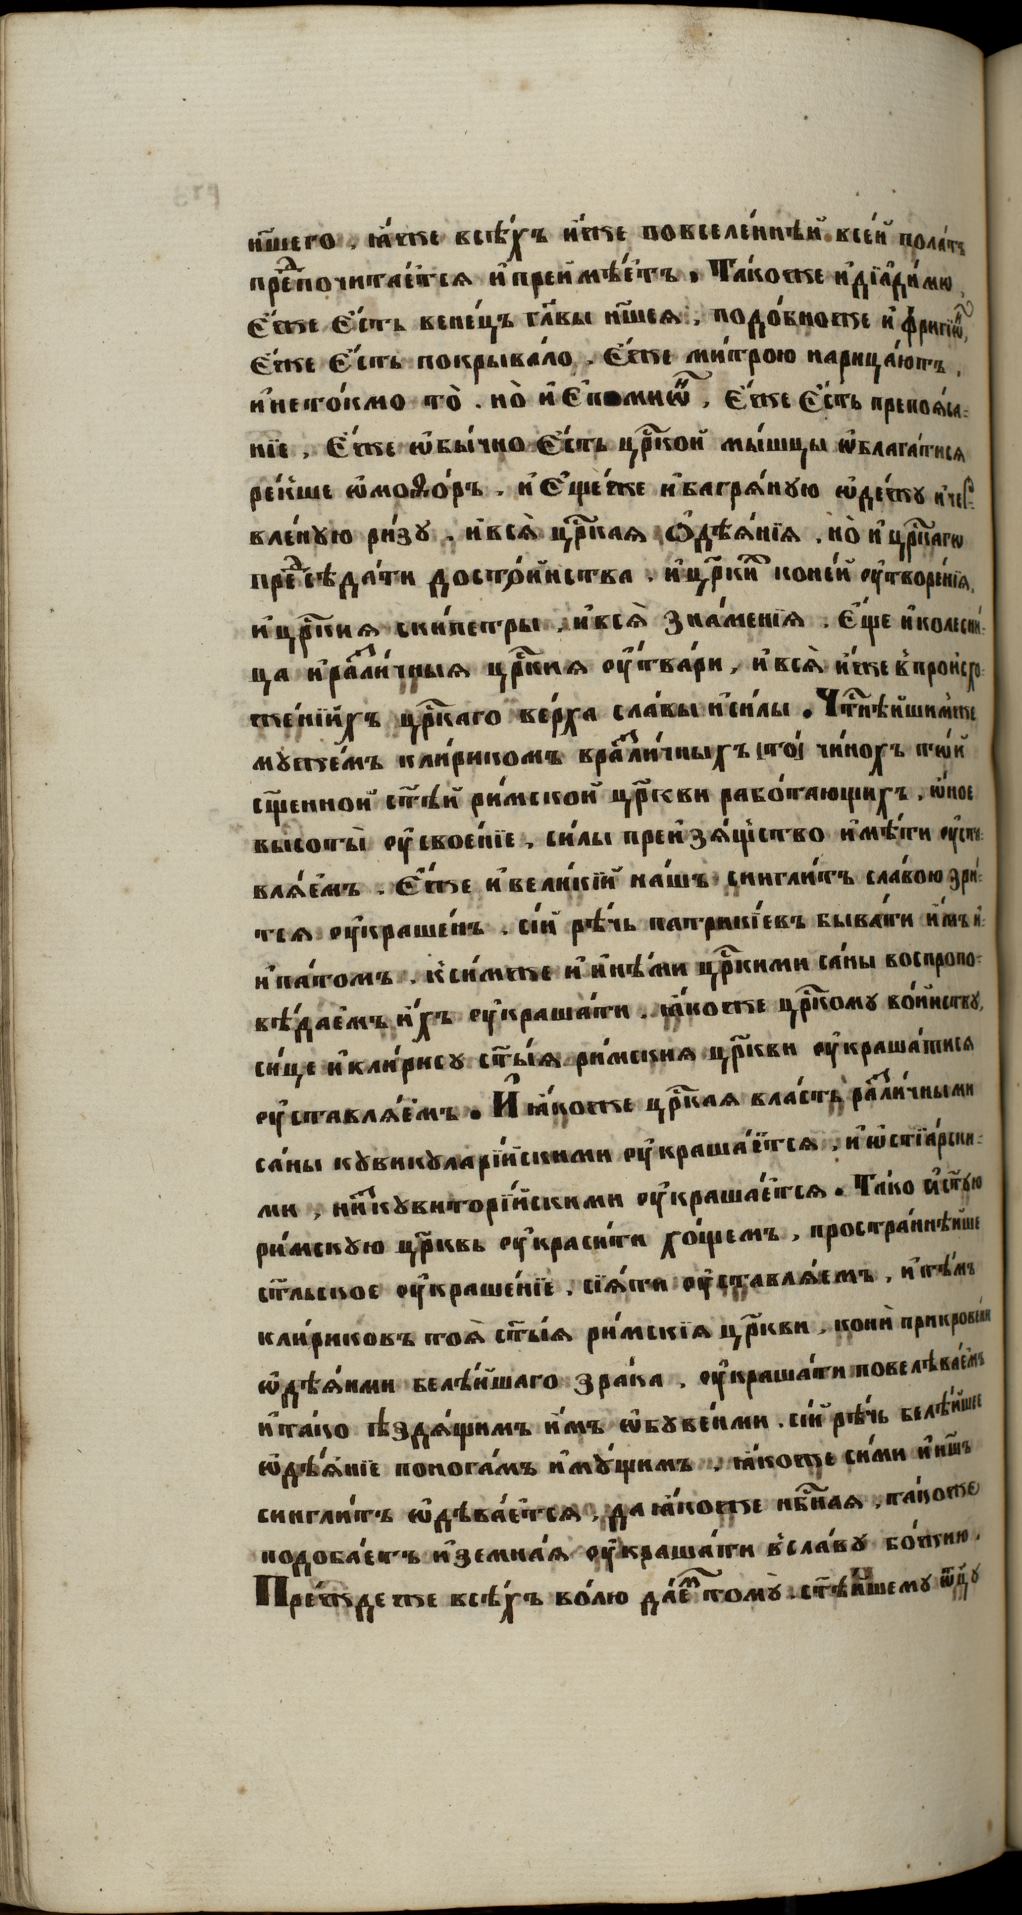 н҃шего , ꙗ҆́же всѣ́хъ и҆́же повселе́ннѣй . всей пола́тъ
пре́дпочита́етсѧ и҆преимѣ́етъ . Та́коже и҆дїади́мю ,
є҆́же є҆́сть вене́цъ гл҃вы н҃шеѧ , подо́бноже и҆ фригїѡ́н ,
є҆́же є҆́сть покрыва́ло . є҆́же ми́трою нарица́ютъ ,
и҆нето́кмо то̀ . но̀ и҆ є҆помиѡ́н , є҆́же є҆́сть препоѧ́са-
нїе , є҆́же ѡ҆бы́чно є҆́сть цр҃кой мы́шцы ѡ҆благатисѧ
ре́кше ѡ҆моѳо́ръ . и҆ є҆ще́же и҆багрѧ́ную ѡ҆де́жу и҆чер-
вле́ную ри́зу . и҆всѧ̀ цр҃каѧ ѻ҆дѣѧ́нїѧ . но̀ и҆ цр҃кагѡ
пре́дсѣда́ти досто́инства . и҆цр҃кихъ коне́й ᲂу҆творе́нїѧ ,
и҆цр҃киѧ скипетры , и҆всѧ̀ зна́менїѧ . Е҆ще и҆колесни́-
ца и҆разли́чныѧ цр҃киѧ ᲂу҆́твари , и҆всѧ̀ и҆́же в̾происхо-
же́нїихъ цр҃каго ве́рха сла́вы и҆си́лы . Чт҃нѣ́йшимже
муже́мъ кли́рикомъ вразли́чныхъ [то] чи́нохъ то́й
сщ҃енной ст҃ѣ́й ри́мской цр҃кви рабо́тающихъ , ѡ҆́ное
высоты̀ ᲂу҆свое́нїе , си́лы преизѧ́щство и҆мѣ́ти ᲂу҆ста-
влѧ́емъ . Е҆́же и҆вели́кїй на́шъ синглитъ сла́вою зри́-
тсѧ ᲂу҆краше́нъ . сі́й рѣ́чь патрикі́евъ быва́ти и҆̀мъ и҆-
и҆па́томъ . к̾симже и҆ и҆нѣ́ми цр҃кими са́ны воспропо-
вѣ́даемъ и҆́хъ ᲂу҆краша́ти . ꙗ҆́коже цр҃кому во́инству ,
си́це и҆кли́рису ст҃ы́ѧ ри́мскиѧ цр҃кви ᲂу҆краша́тисѧ
ᲂу҆ставлѧ́емъ . И҆ ꙗ҆́коже цр҃каѧ вла́сть разли́чными
са́ны кувикуларі́йскими ᲂу҆краша́етсѧ , и҆ѡ҆стїа́рски-
ми , и҆нкувиторі́йскими ᲂу҆краша́етсѧ . Та́ко и҆ст҃ую
ри́мскую цр҃квь ᲂу҆краси́ти хо́щемъ , простра́ннѣйше
ст҃льское ᲂу҆краше́нїе , сїѧ́ти ᲂу҆ставлѧ́емъ , и҆тѣ́мъ
кли́риковъ тоѧ̀ ст҃ы́ѧ ри́мскїѧ цр҃кви , кони̇̀ прикрове́ни
ѡ҆дѣѧ́ними белѣ́йшаго зра́ка , ᲂу҆краша́ти повелѣва́емъ
и҆та́ко ѣ҆здѧ́щимъ и҆̀мъ ѡ҆буве́ими . сі́й рѣ́чь белѣ́йшее
ѡ҆дѣѧ́нїе поногáмъ и҆му́щимъ , ꙗ҆́коже си́ми и҆ н҃шъ
синглитъ ѡ҆дѣва́етсѧ , да ꙗ҆́коже нб҃наѧ , та́коже
подоба́етъ и҆земна́ѧ ᲂу҆краша́ти в̾сла́ву бо́жию .
Пре́жде же всѣ́хъ во́лю да́емъ тому̀ . ст҃ѣ́йшему ѻ҆ц҃у